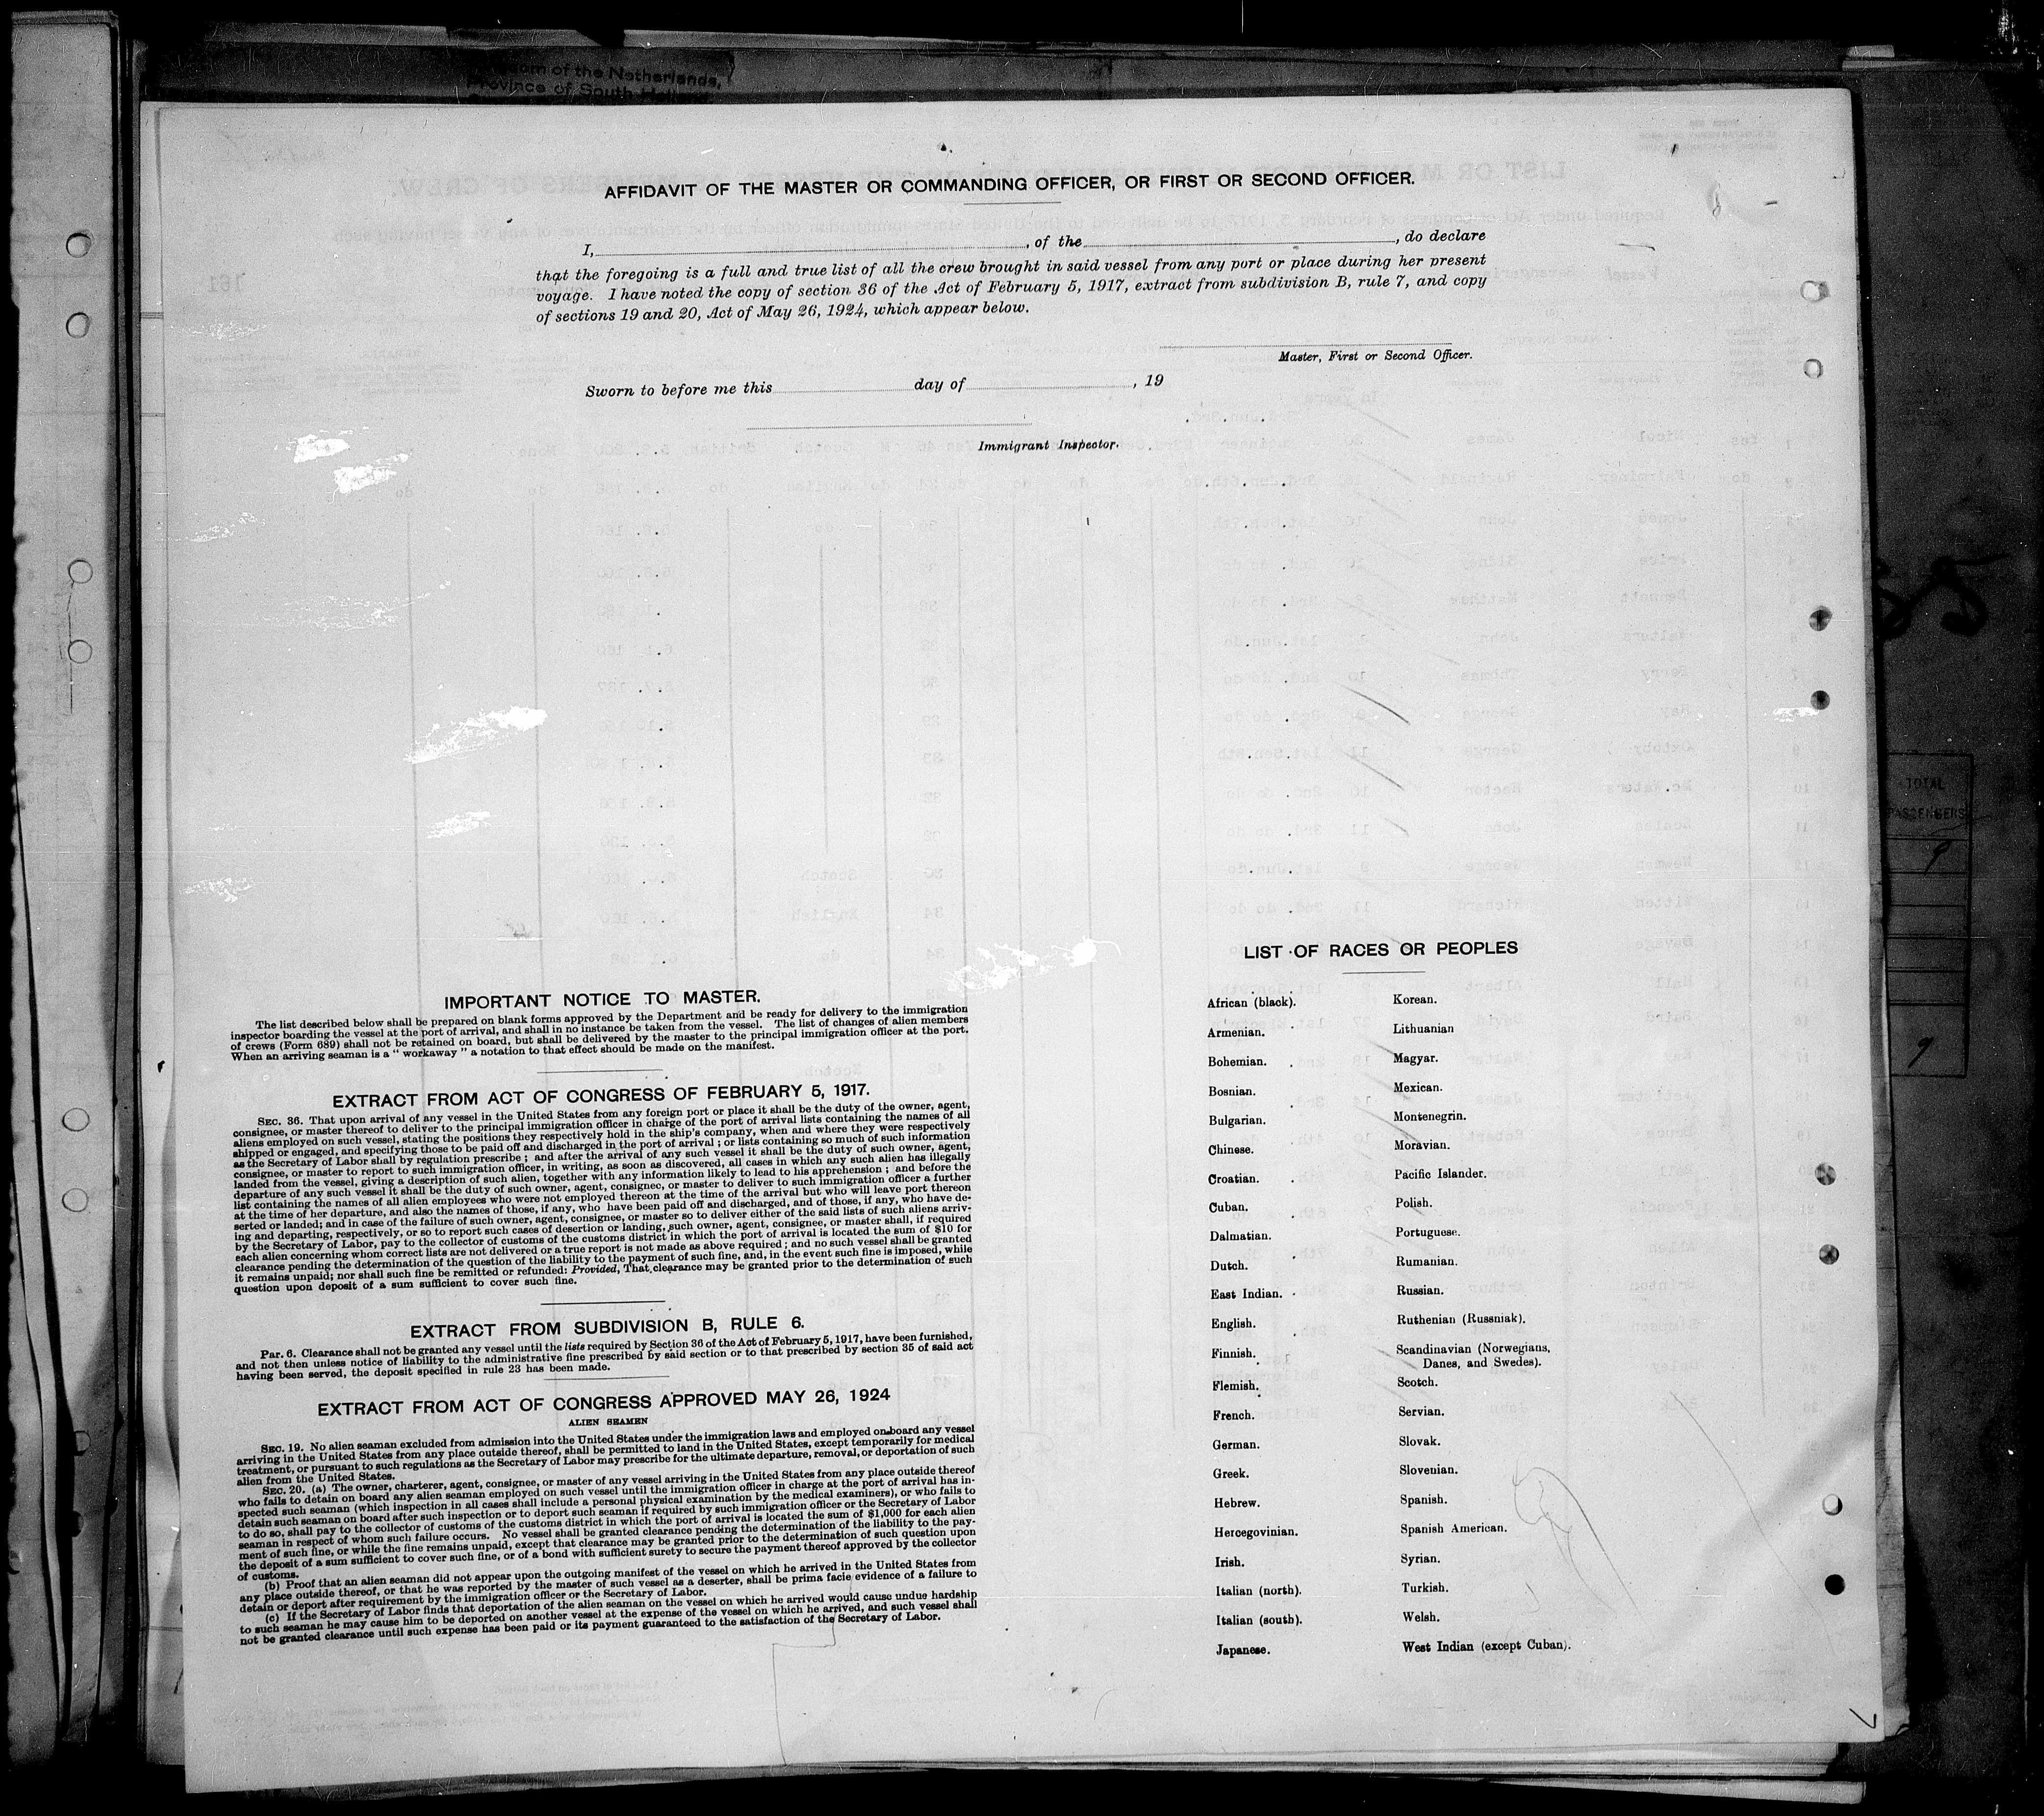 Kingdom of the Netherlands,
Province of South Holland
AFFIDAVIT OF THE MASTER OR COMMANDING OFFICER, OR FIRST OR SECOND OFFICER.
I, , of the , do declare
that the foregoing is a full and true list of all the crew brought in said vessel from any port or place during her present
voyage. I have noted the copy of section 36 of the Act of February 5, 1917, extract from subdivision B, rule 7, and copy
of sections 19 and 20, Act of May 26, 1924, which appear below.
Master, First or Second Officer.
Sworn to before me this day of , 19
Immigrant Inspector.
IMPORTANT NOTICE TO MASTER.
The list described below shall be prepared on blank forms approved by the Department and be ready for delivery to the immigration
inspector boarding the vessel at the port of arrival, and shall in no instance be taken from the vessel. The list of changes of alien members
of crews (Form 689) shall not be retained on board, but shall be delivered by the master to the principal immigration officer at the port.
When an arriving seaman is a "workaway" a notation to that effect should be made on the manifest.
EXTRACT FROM ACT OF CONGRESS OF FEBRUARY 5, 1917.
SEC. 36. That upon arrival of any vessel in the United States from any foreign port or place it shall be the duty of the owner, agent,
consignee, or master thereof to deliver to the principal immigration officer in charge of the port of arrival lists containing the names of all
aliens employed on such vessel, stating the positions they respectively hold in the ship's company, when and where they were respectively
shipped or engaged, and specifying those to be paid off and discharged in the port of arrival; or lists containing so much of such information
as the Secretary of Labor shall by regulation prescribe; and after the arrival of any such vessel it shall be the duty of such owner, agent,
consignee, or master to report to such immigration officer, in writing, as soon as discovered, all cases in which any such alien has illegally
landed from the vessel, giving a description of such alien, together with any information likely to lead to his apprehension; and before the
departure of any such vessel it shall be the duty of such owner, agent, consignee, or master to deliver to such immigration officer a further
list containing the names of all alien employees who were not employed thereon at the time of the arrival but who will leave port thereon
at the time of her departure, and also the names of those, if any, who have been paid off and discharged, and of those, if any, who have de-
serted or landed; and in case of the failure of such owner, agent, consignee, or master so to deliver either of the said lists of such aliens arriv-
ing and departing, respectively, or so to report such cases of desertion or landing, such owner, agent, consignee, or master shall, if required
by the Secretary of Labor, pay to the collector of customs of the customs district in which the port of arrival is located the sum of $10 for
each alien concerning whom correct lists are not delivered or a true report is not made as above required; and no such vessel shall be granted
clearance pending the determination of the question of the liability to the payment of such fine, and, in the event such fine is imposed, while
it remains unpaid; nor shall such fine be remitted or refunded: Provided, That clearance may be granted prior to the determination of such
question upon deposit of a sum sufficient to cover such fine.
EXTRACT FROM SUBDIVISION B, RULE 6.
Par. 6. Clearance shall not be granted any vessel until the lists required by Section 36 of the Act of February 5, 1917, have been furnished,
and not then unless notice of liability to the administrative fine prescribed by said section or to that prescribed by section 35 of said act
having been served, the deposit specified in rule 23 has been made.
EXTRACT FROM ACT OF CONGRESS APPROVED MAY 26, 1924
ALIEN SEAMEN
SEC. 19. No alien seaman excluded from admission into the United States under the immigration laws and employed on board any vessel
arriving in the United States from any place outside thereof, shall be permitted to land in the United States, except temporarily for medical
treatment, or pursuant to such regulations as the Secretary of Labor may prescribe for the ultimate departure, removal, or deportation of such
alien from the United States.
SEC. 20. (a) The owner, charterer, agent, consignee, or master of any vessel arriving in the United States from any place outside thereof
who fails to detain on board any alien seaman employed on such vessel until the immigration officer in charge at the port of arrival has in-
spected such seaman (which inspection in all cases shall include a personal physical examination by the medical examiners), or who fails to
detain such seaman on board after such inspection or to deport such seaman if required by such immigration officer or the Secretary of Labor
to do so, shall pay to the collector of customs of the customs district in which the port of arrival is located the sum of $1,000 for each alien
seaman in respect of whom such failure occurs. No vessel shall be granted clearance pending the determination of the liability to the pay-
ment of such fine, or while the fine remains unpaid, except that clearance may be granted prior to the determination of such question upon
the deposit of a sum sufficient to cover such fine, or of a bond with sufficient surety to secure the payment thereof approved by the collector
of customs.
(b) Proof that an alien seaman did not appear upon the outgoing manifest of the vessel on which he arrived in the United States from
any place outside thereof, or that he was reported by the master of such vessel as a deserter, shall be prima facie evidence of a failure to
detain or deport after requirement by the immigration officer or the Secretary of Labor.
(c) If the Secretary of Labor finds that deportation of the alien seaman on the vessel on which he arrived would cause undue hardship
to such seaman he may cause him to be deported on another vessel at the expense of the vessel on which he arrived, and such vessel shall
not be granted clearance until such expense has been paid or its payment guaranteed to the satisfaction of the Secretary of Labor.
LIST OF RACES OR PEOPLES
African (black).
Armenian.
Bohemian.
Bosnian.
Bulgarian.
Chinese.
Croatian.
Cuban.
Dalmatian.
Dutch.
East Indian.
English.
Finnish.
Flemish.
French.
German.
Greek.
Hebrew.
Hercegovinian.
Irish.
Italian (north).
Italian (south).
Japanese.
Korean.
Lithuanian
Magyar.
Mexican.
Montenegrin.
Moravian.
Pacific Islander.
Polish.
Portuguese.
Rumanian.
Russian.
Ruthenian (Russniak).
Scandinavian (Norwegians,
Danes, and Swedes).
Scotch.
Servian.
Slovak.
Slovenian.
Spanish.
Spanish American.
Syrian.
Turkish.
Welsh.
West Indian (except Cuban).
TOTAL
PASSENGERS
9
9